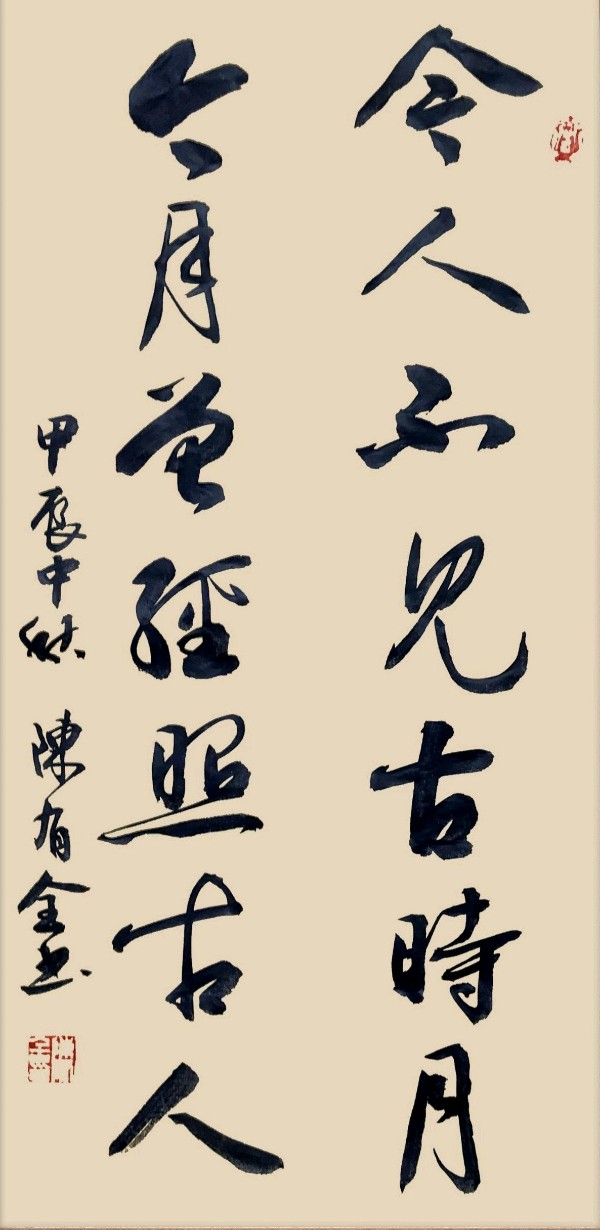 今人不見古時月
今月曾經照古人
甲辰中秋 陳有金书